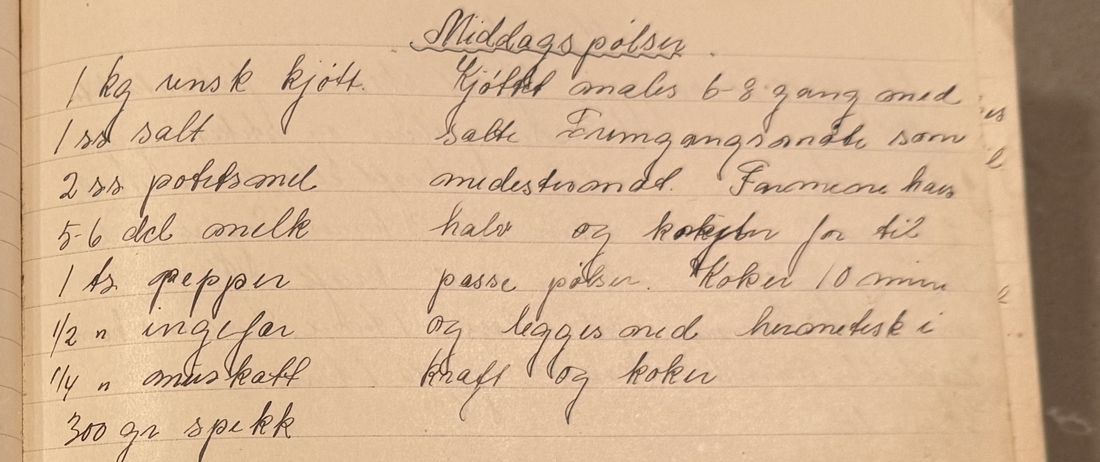 Middagspølser.
1 kg rensk kjøtt.
1 ss salt
2 ss potetsmel
5-6 dcl melk
1 ts pepper
1/2 " ingefær
1/4 " muskatt
300 gr spekk
Kjøttet males 6-8 gang med
salte Fremgangsmåte som
medestermad. Farmene
halv og for til
passe pølser. Koker 10 min
og legges ned hermetisk i
kraft og koker